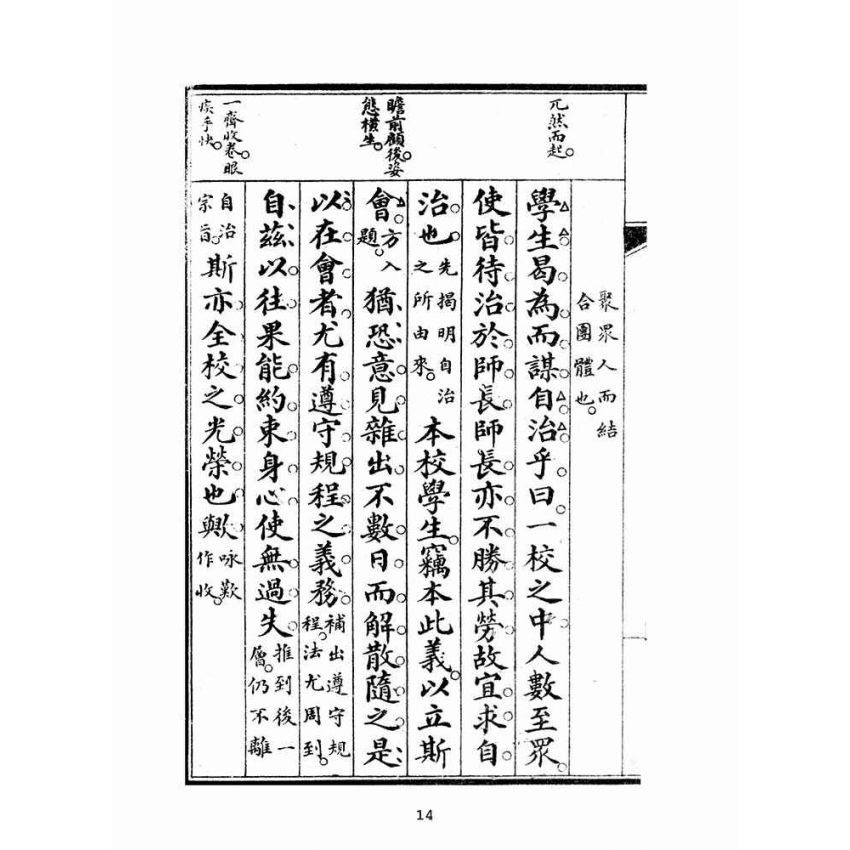 兀然而起。
瞻前顧後姿
態橫生。
一齊收卷眼
疾手快。
聚眾人而結
合團體也。
學生曷為而謀自治乎曰。一校之中人數至眾。
使皆待治於師長。師長亦不勝其勞。故宜求自
治也。先揭明自治之所由來。本校學生。竊本此義。以立斯
會。方入題。猶恐意見雜出。不數日而解散隨之。是
以在會者。尤有遵守規程之義務。補出遵守規程。法尤周到。
自茲以往。果能約束身心。使無過失。推到後一層。仍不離
自治宗旨。斯亦全校之光榮也歟。咏歎作收。
14